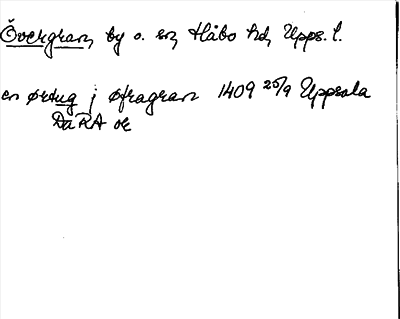 Övergran, by o. sn, Håbo hd, Upps. l.
en ørtug j øfragran 1409 25/9 Uppsala
DaRA or